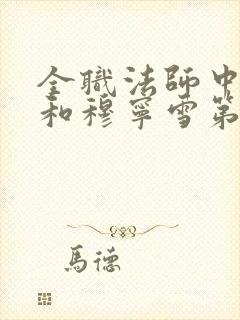 全職法師中
和穆寧雪第
馬德